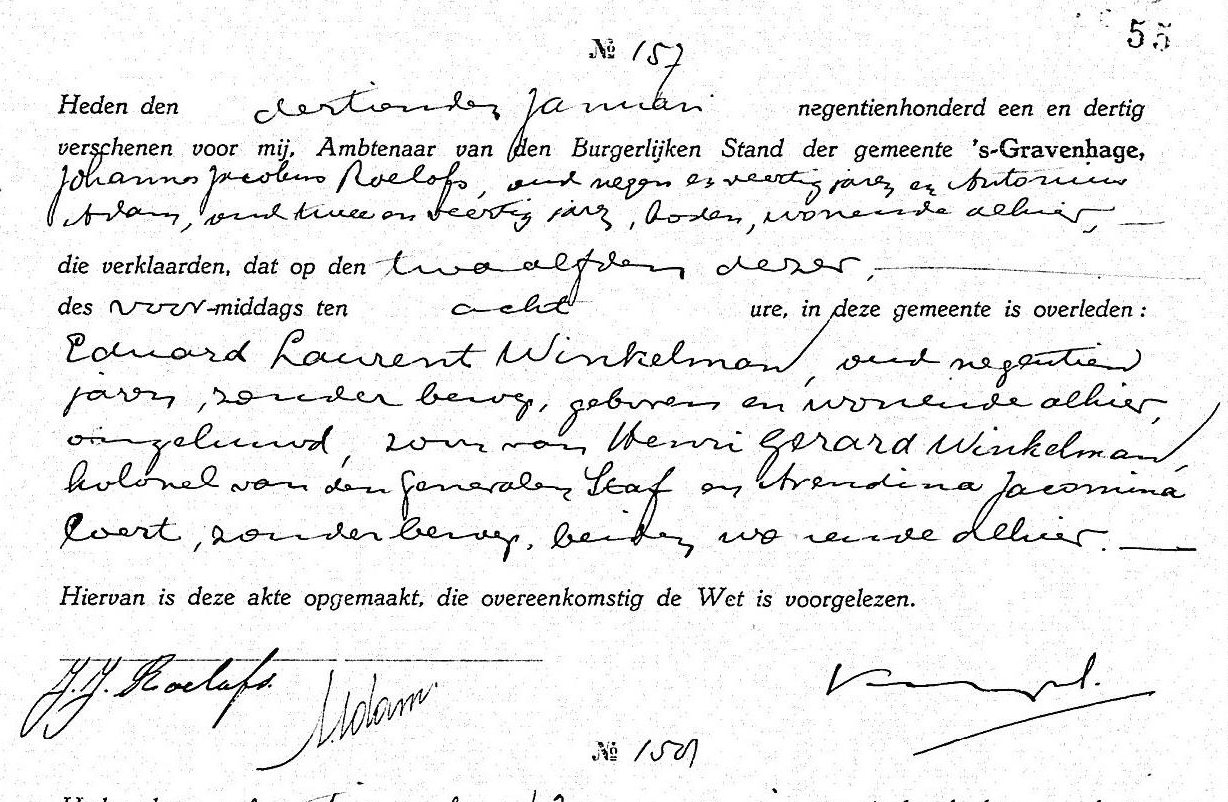 55
№ 157
Heden den dertienden Januari negentienhonderd een en dertig
verschenen voor mij, Ambtenaar van den Burgerlijken Stand der gemeente 's-Gravenhage,
Johannes Jacobus Roelofs, oud negen en veertig jaren en Antonius
Adam, oud twee en veertig jaren, boden, wonende alhier,
die verklaarden, dat op den twaalfden dezer,
des voor-middags ten acht ure, in deze gemeente is overleden:
Eduard Laurent Winkelman, oud negentien
jaren, zonder beroep, geboren en wonende alhier,
ongehuwd, zoon van Henri Gerard Winkelman,
kolonel van den Generalen Staf en Arendina Jacomina
Coert, zonder beroep, beiden wonende alhier.
Hiervan is deze akte opgemaakt, die overeenkomstig de Wet is voorgelezen.
J.J. Roelofs.
A. Adam.
№